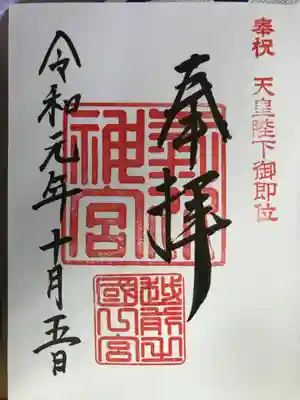 奉祝 天皇陛下御即位
奉拝
神宮
越前之
國二宮
令和元年十月五日